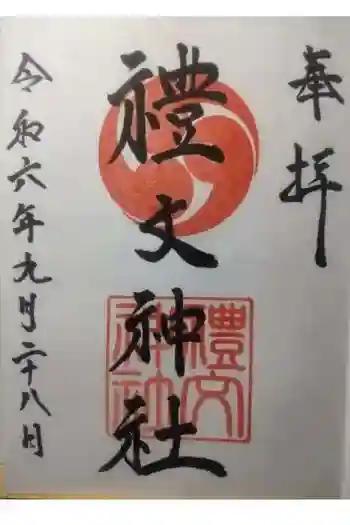 奉拝
禮文神社
禮文
神社
令和六年九月二十八日